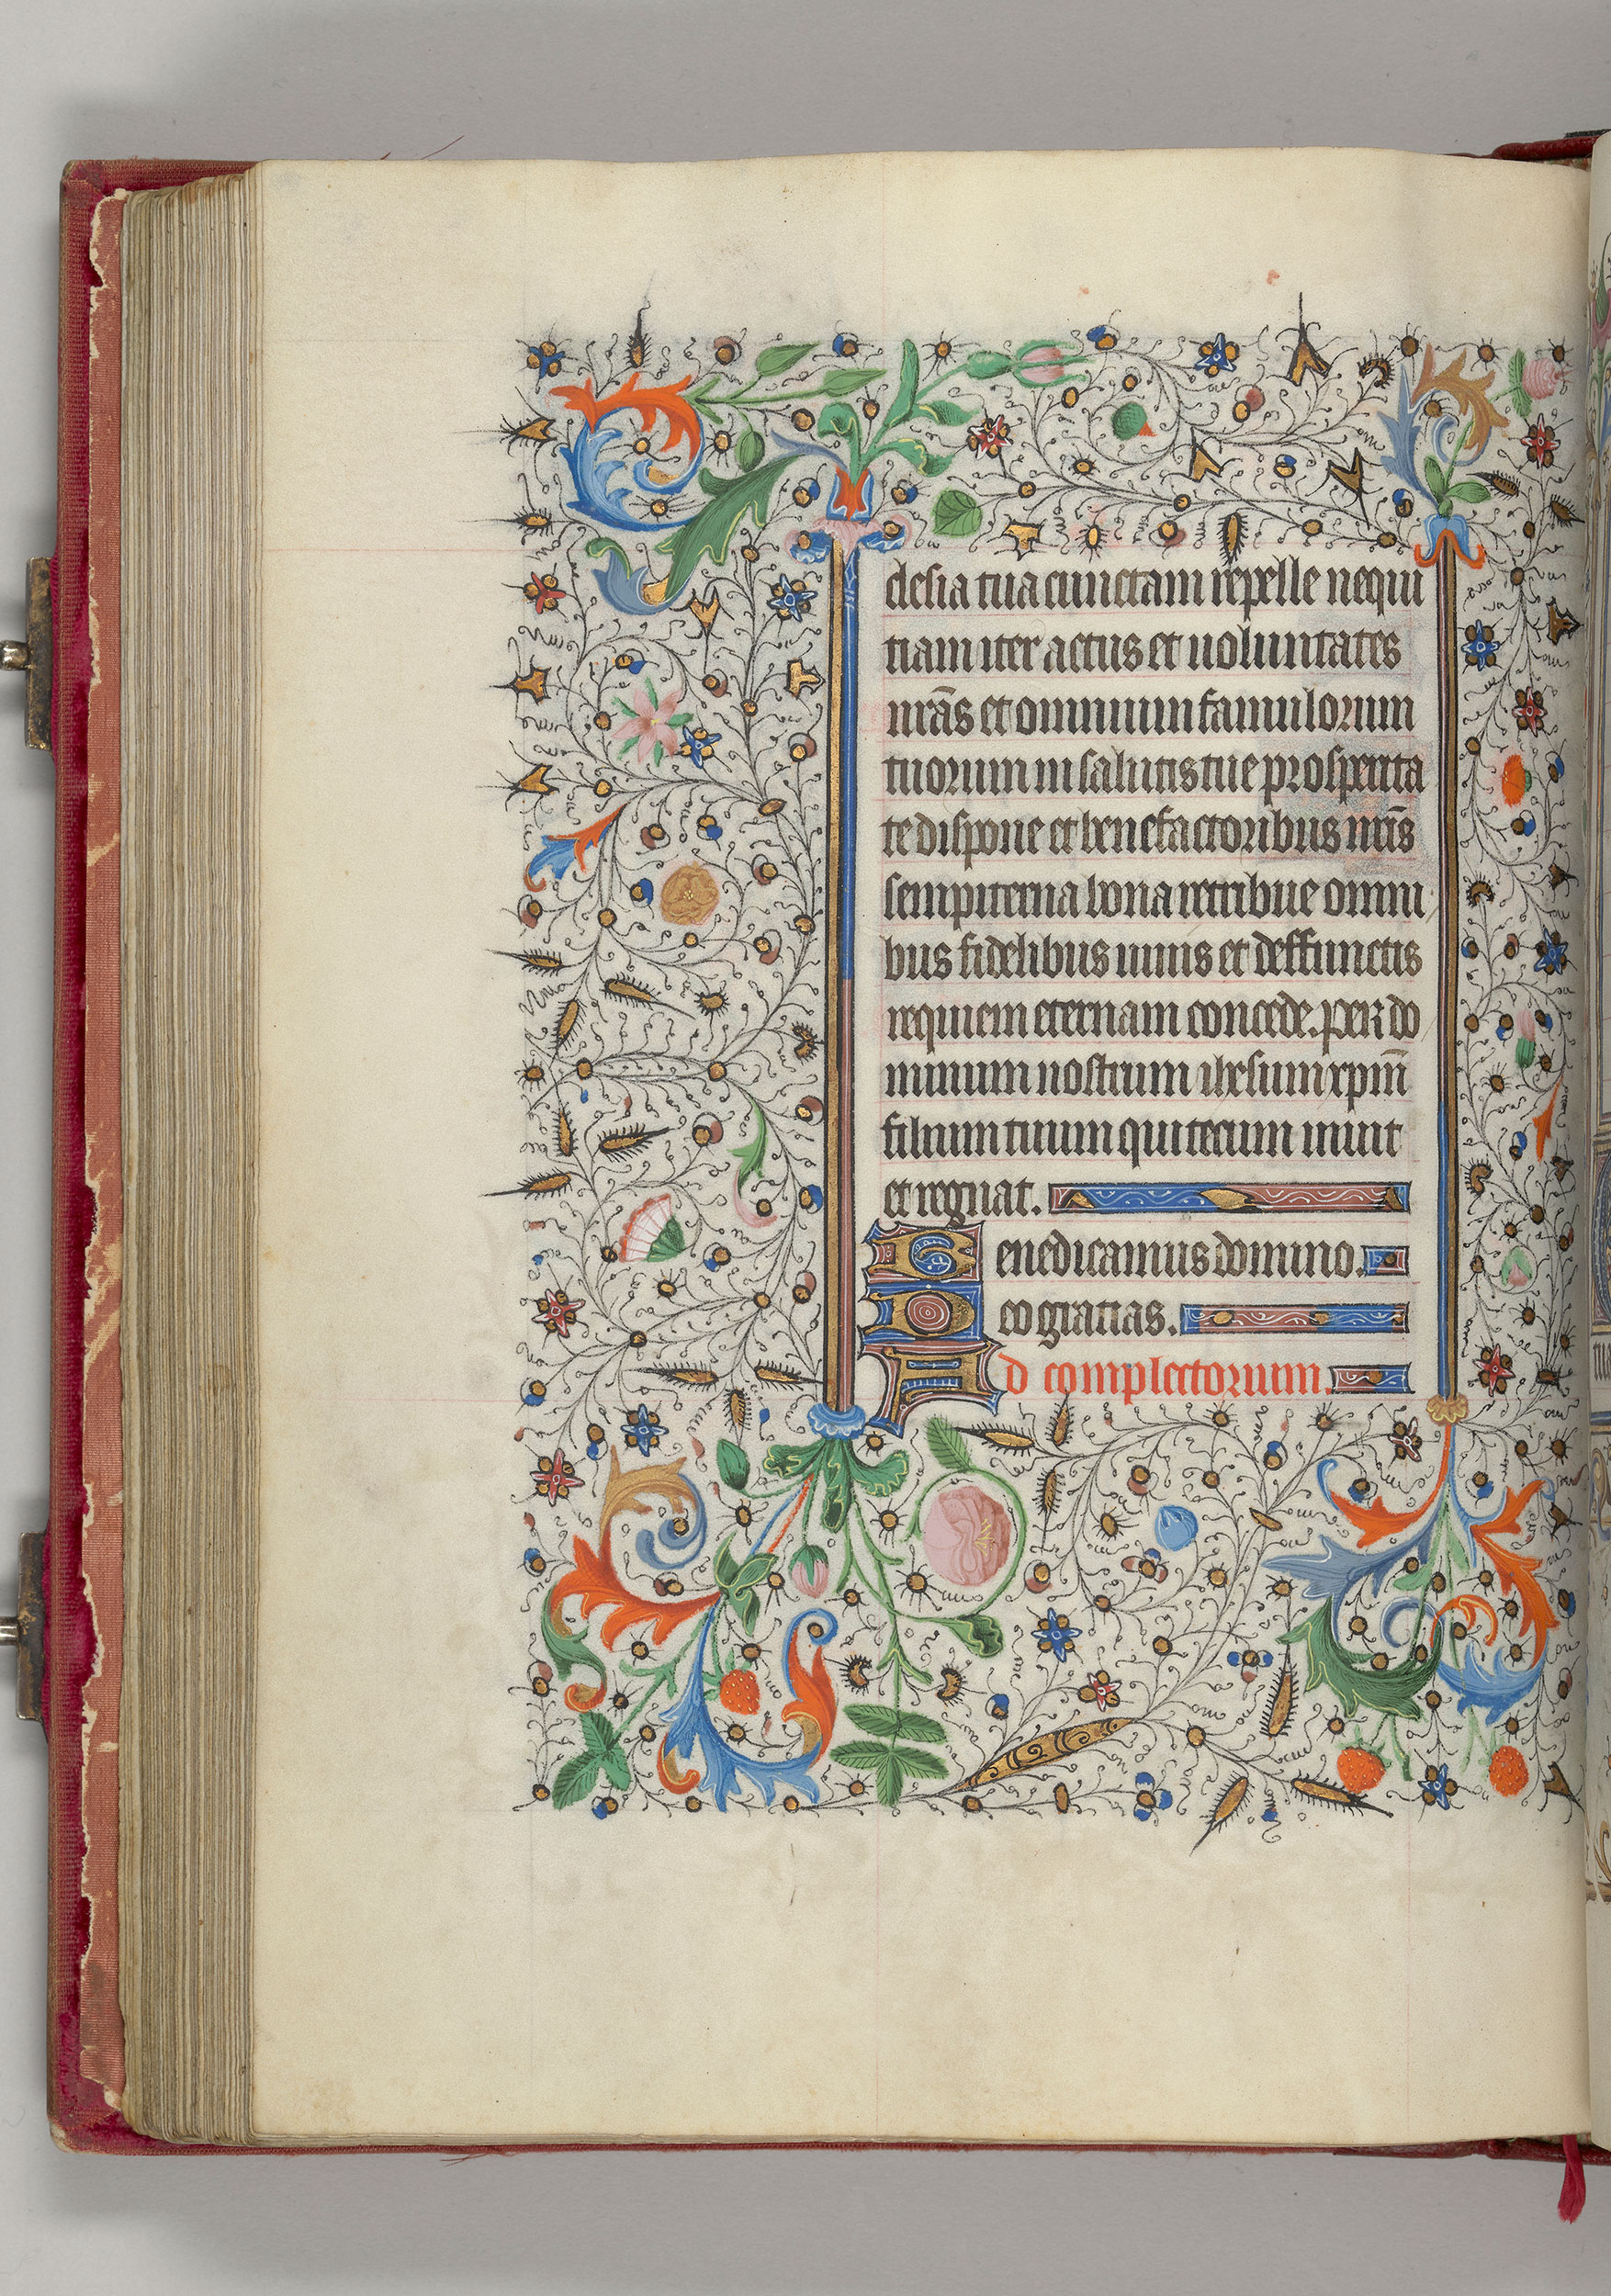 clesia tua cunctam repelle nequi
tiam iter actus et uoluntates
nr̄as et omnium famulorum
tuorum in salutis tue prosperita
te dispone et benefactoribus nr̄is
sempiterna bona retribue omni
bus fidelibus uiuis et deffunctis
requiem eternam concede. per do
minum nostrum ihesum xpm̄
filium tuum qui tecum uiuit
et regnat.
Benedicamus domino.
Deo gratias.
Ad complectorum.